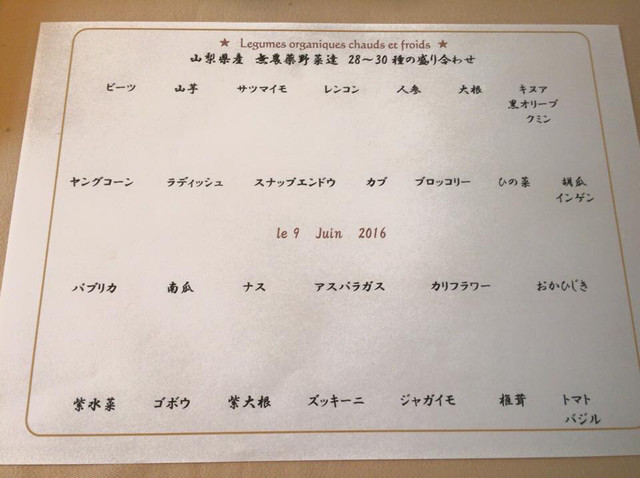 ★ Legumes organiques chauds et froids ★
山梨県産 無農薬野菜達 28〜30種の盛り合わせ
ビーツ 山芋 サツマイモ レンコン 人参 大根 キヌア
黒オリーブ
クミン
ヤングコーン ラディッシュ スナップエンドウ カブ ブロッコリー ひの菜 胡瓜
インゲン
le 9 Juin 2016
パプリカ 南瓜 ナス アスパラガス カリフラワー おかひじき
紫水菜 ゴボウ 紫大根 ズッキーニ ジャガイモ 椎茸 トマト
バジル